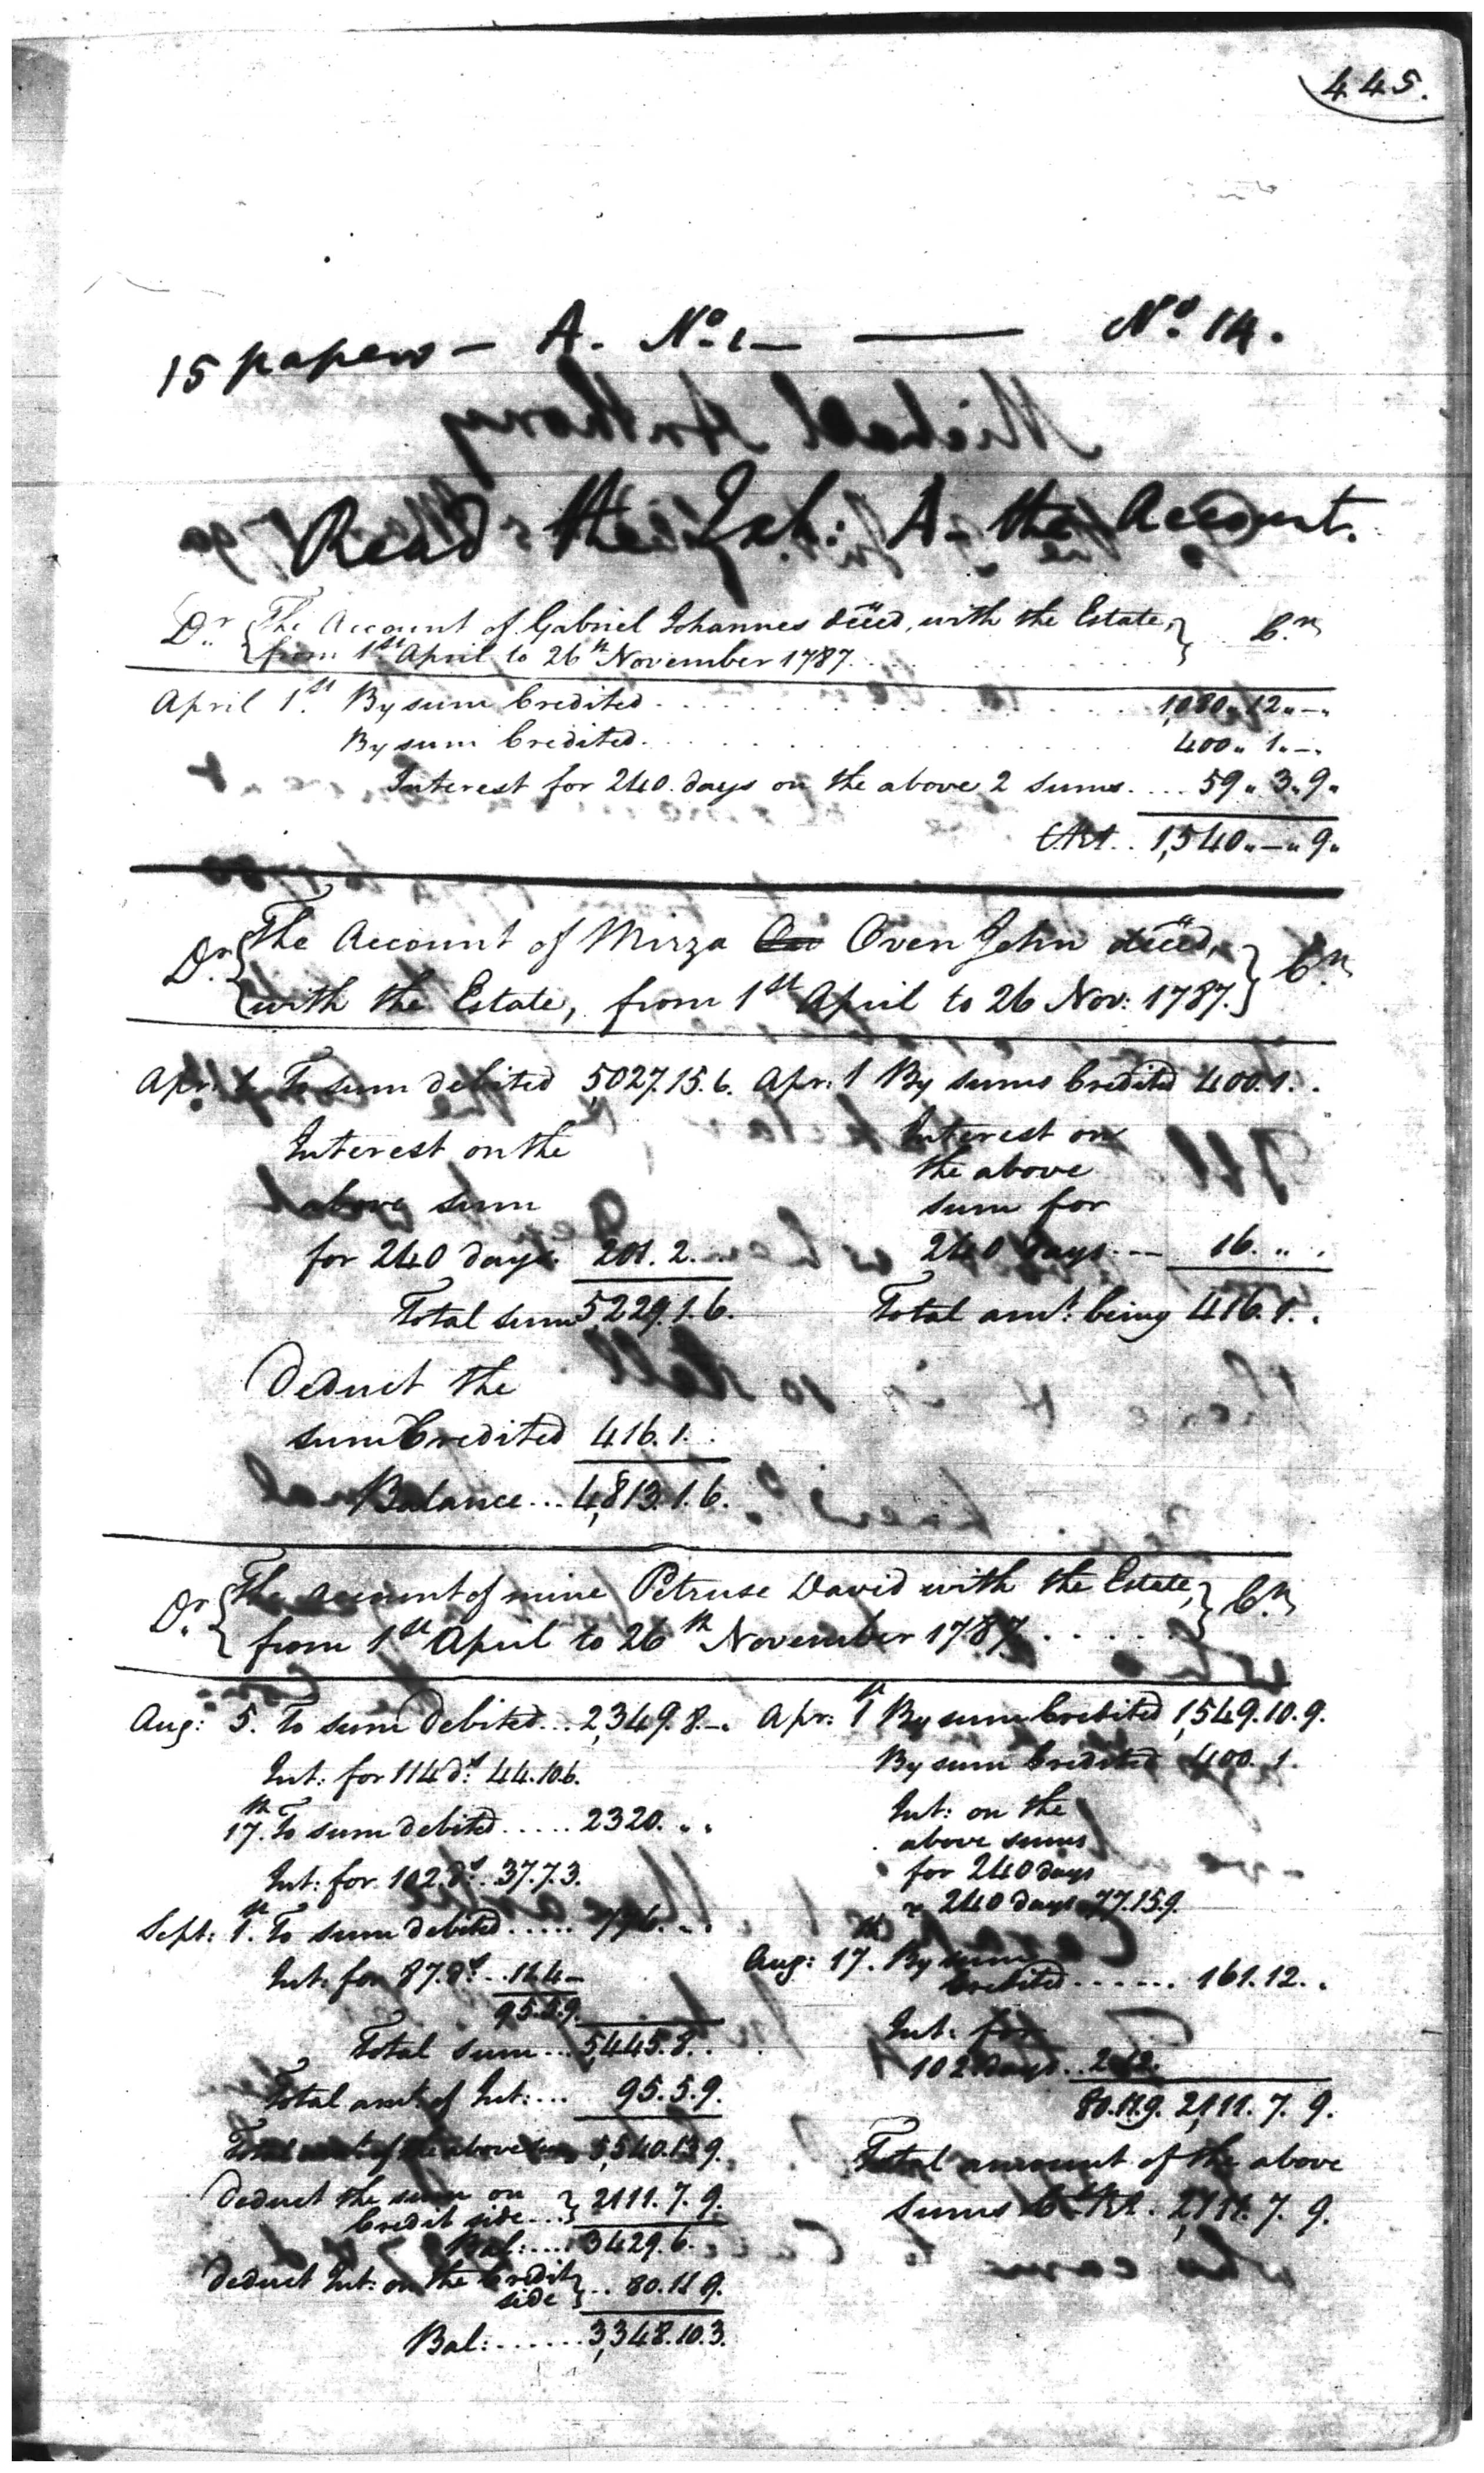 445.
15 papers – A. Nº 1 — —— Nº 14.
Read the Exh: A – the Account.
Dr. {The Account of Gabriel Johannes deced, with the Estate,} Cr.
{from 1st April to 26th November 1787. . . .
April 1st By sum Credited . . . . 1,080 " 12 " – "
By sum Credited . . . . 400 " 1 " – "
Interest for 240 days on the above 2 sums . . . . 59 " 3 " 9 "
1,540 " – " 9 "
Dr. {The Account of Mirza Oven John deced,} Cr.
{with the Estate, from 1st April to 26 Nov: 1787.}
Apr: 1. To sum debited 5,027.15.6. Apr: 1 By sums Credited 400.1. .
Interest on the Interest on
above sum the above
sum for
for 240 days. 201.2. . 240 days. — 16. " .
Total sum 5,229.1.6. Total amt. being 416.1. .
Deduct the
sum Credited 416.1. .
Balance . . . 4,813.1.6.
Dr. {The account of mine Petruse David with the Estate,} Cr.
{from 1st April to 26th November 1787 . . . . .}
Aug: 5. To sum debited . . . 2,349.8.–. Apr: 1st By sum Credited 1,549.10.9.
Int: for 114 ds. 44.10.6. By sum Credited 400.1.
17th. To sum debited . . . . . 2320. " " Int: on the
above sums
Int: for 102. ds. 37.7.3. for 240 days
240 days 77.15.9.
Sept: 1st. To sum debited . . . . . 776. " . Aug: 17th. By sum
Int: for 87. ds. . . Credited . . . . . . 161.12. .
95.5.9. Int: for
Total sum . . . 5,445.8. . 102 days . .
Total amt. of Int: . . . 95.5.9. 2,111.7.9.
Total amt. of the above sum 5,540.13.9. Total amount of the above
Deduct the sum on } 2111.7.9. sums 2,111.7.9.
Credit side . . . }
Bal: . . . . 3429.6. .
Deduct Int: on the Credit }
side }
Bal: . . . . . . 3,348.10.3.